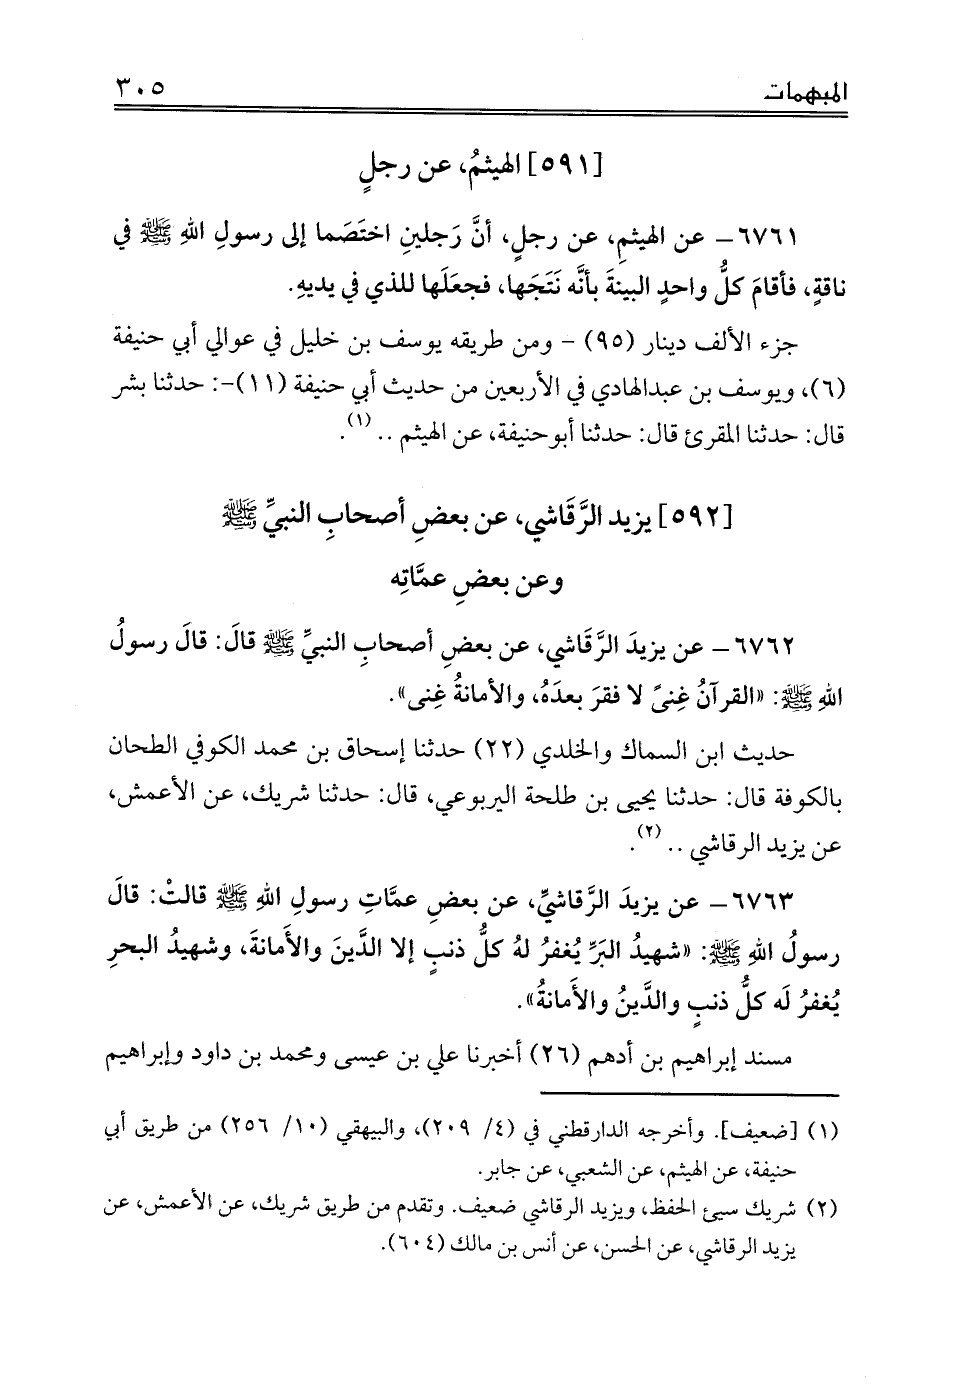 المبهمات ٣٠٥
[٥٩١] الهيثمُ، عن رجلٍ
٦٧٦١ – عن الهيثمِ، عن رجلٍ، أنَّ رَجلينِ اختَصَما إلى رسولِ اللهِ ﷺ في
ناقةٍ، فأقامَ كلُّ واحدٍ البينةَ بأنَّه نَتَجَها، فجعَلَها للذي في يديهِ.
جزء الألف دينار (٩٥) - ومن طريقه يوسف بن خليل في عوالي أبي حنيفة
(٦)، ويوسف بن عبدالهادي في الأربعين من حديث أبي حنيفة (١١)-: حدثنا بشر
قال: حدثنا المقرئ قال: حدثنا أبوحنيفة، عن الهيثم .. (١).
[٥٩٢] يزيد الرَّقَاشي، عن بعضِ أصحابِ النبيِّ ﷺ
وعن بعضِ عمَّاتِه
٦٧٦٢ – عن يزيدَ الرَّقاشي، عن بعضِ أصحابِ النبيِّ ﷺ قالَ: قالَ رسولُ
اللهِ ﷺ: «القرآنُ غِنىً لا فقرَ بعدَهُ، والأمانةُ غِنى».
حديث ابن السماك والخلدي (٢٢) حدثنا إسحاق بن محمد الكوفي الطحان
بالكوفة قال: حدثنا يحيى بن طلحة اليربوعي، قال: حدثنا شريك، عن الأعمش،
عن يزيد الرقاشي .. (٢).
٦٧٦٣ – عن يزيدَ الرَّقاشيِّ، عن بعضِ عمَّاتِ رسولِ اللهِ ﷺ قالتْ: قالَ
رسولُ اللهِ ﷺ: «شهيدُ البَرِّ يُغفرُ لهُ كلُّ ذنبٍ إلا الدَّينَ والأَمانةَ، وشهيدُ البحرِ
يُغفرُ له كلُّ ذنبٍ والدَّينُ والأَمانةُ».
مسند إبراهيم بن أدهم (٢٦) أخبرنا علي بن عيسى ومحمد بن داود وإبراهيم
(١) [ضعيف]. وأخرجه الدارقطني في (٤/ ٢٠٩)، والبيهقي (١٠/ ٢٥٦) من طريق أبي
حنيفة، عن الهيثم، عن الشعبي، عن جابر.
(٢) شريك سيئ الحفظ، ويزيد الرقاشي ضعيف. وتقدم من طريق شريك، عن الأعمش، عن
يزيد الرقاشي، عن الحسن، عن أنس بن مالك (٦٠٤).